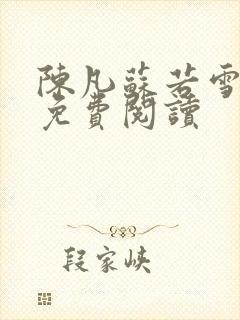 陳凡蘇若雪
免費閱讀
段家峡